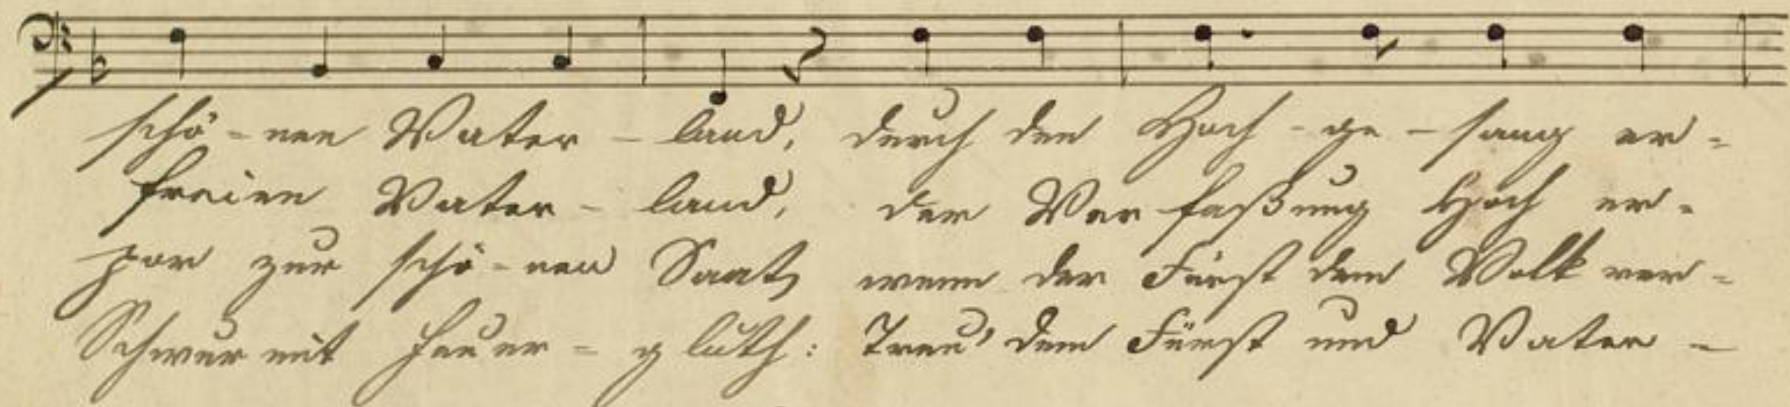 schö-nen Vater-land, durch den Hoch-ge-sang er-
freien Vater-land, der Verfaßung Hoch er-
por zur schö-nen Saat, wenn der Fürst dem Volk ver-
Schwur mit Feuer-gluth: Treu' dem Fürst und Vater-